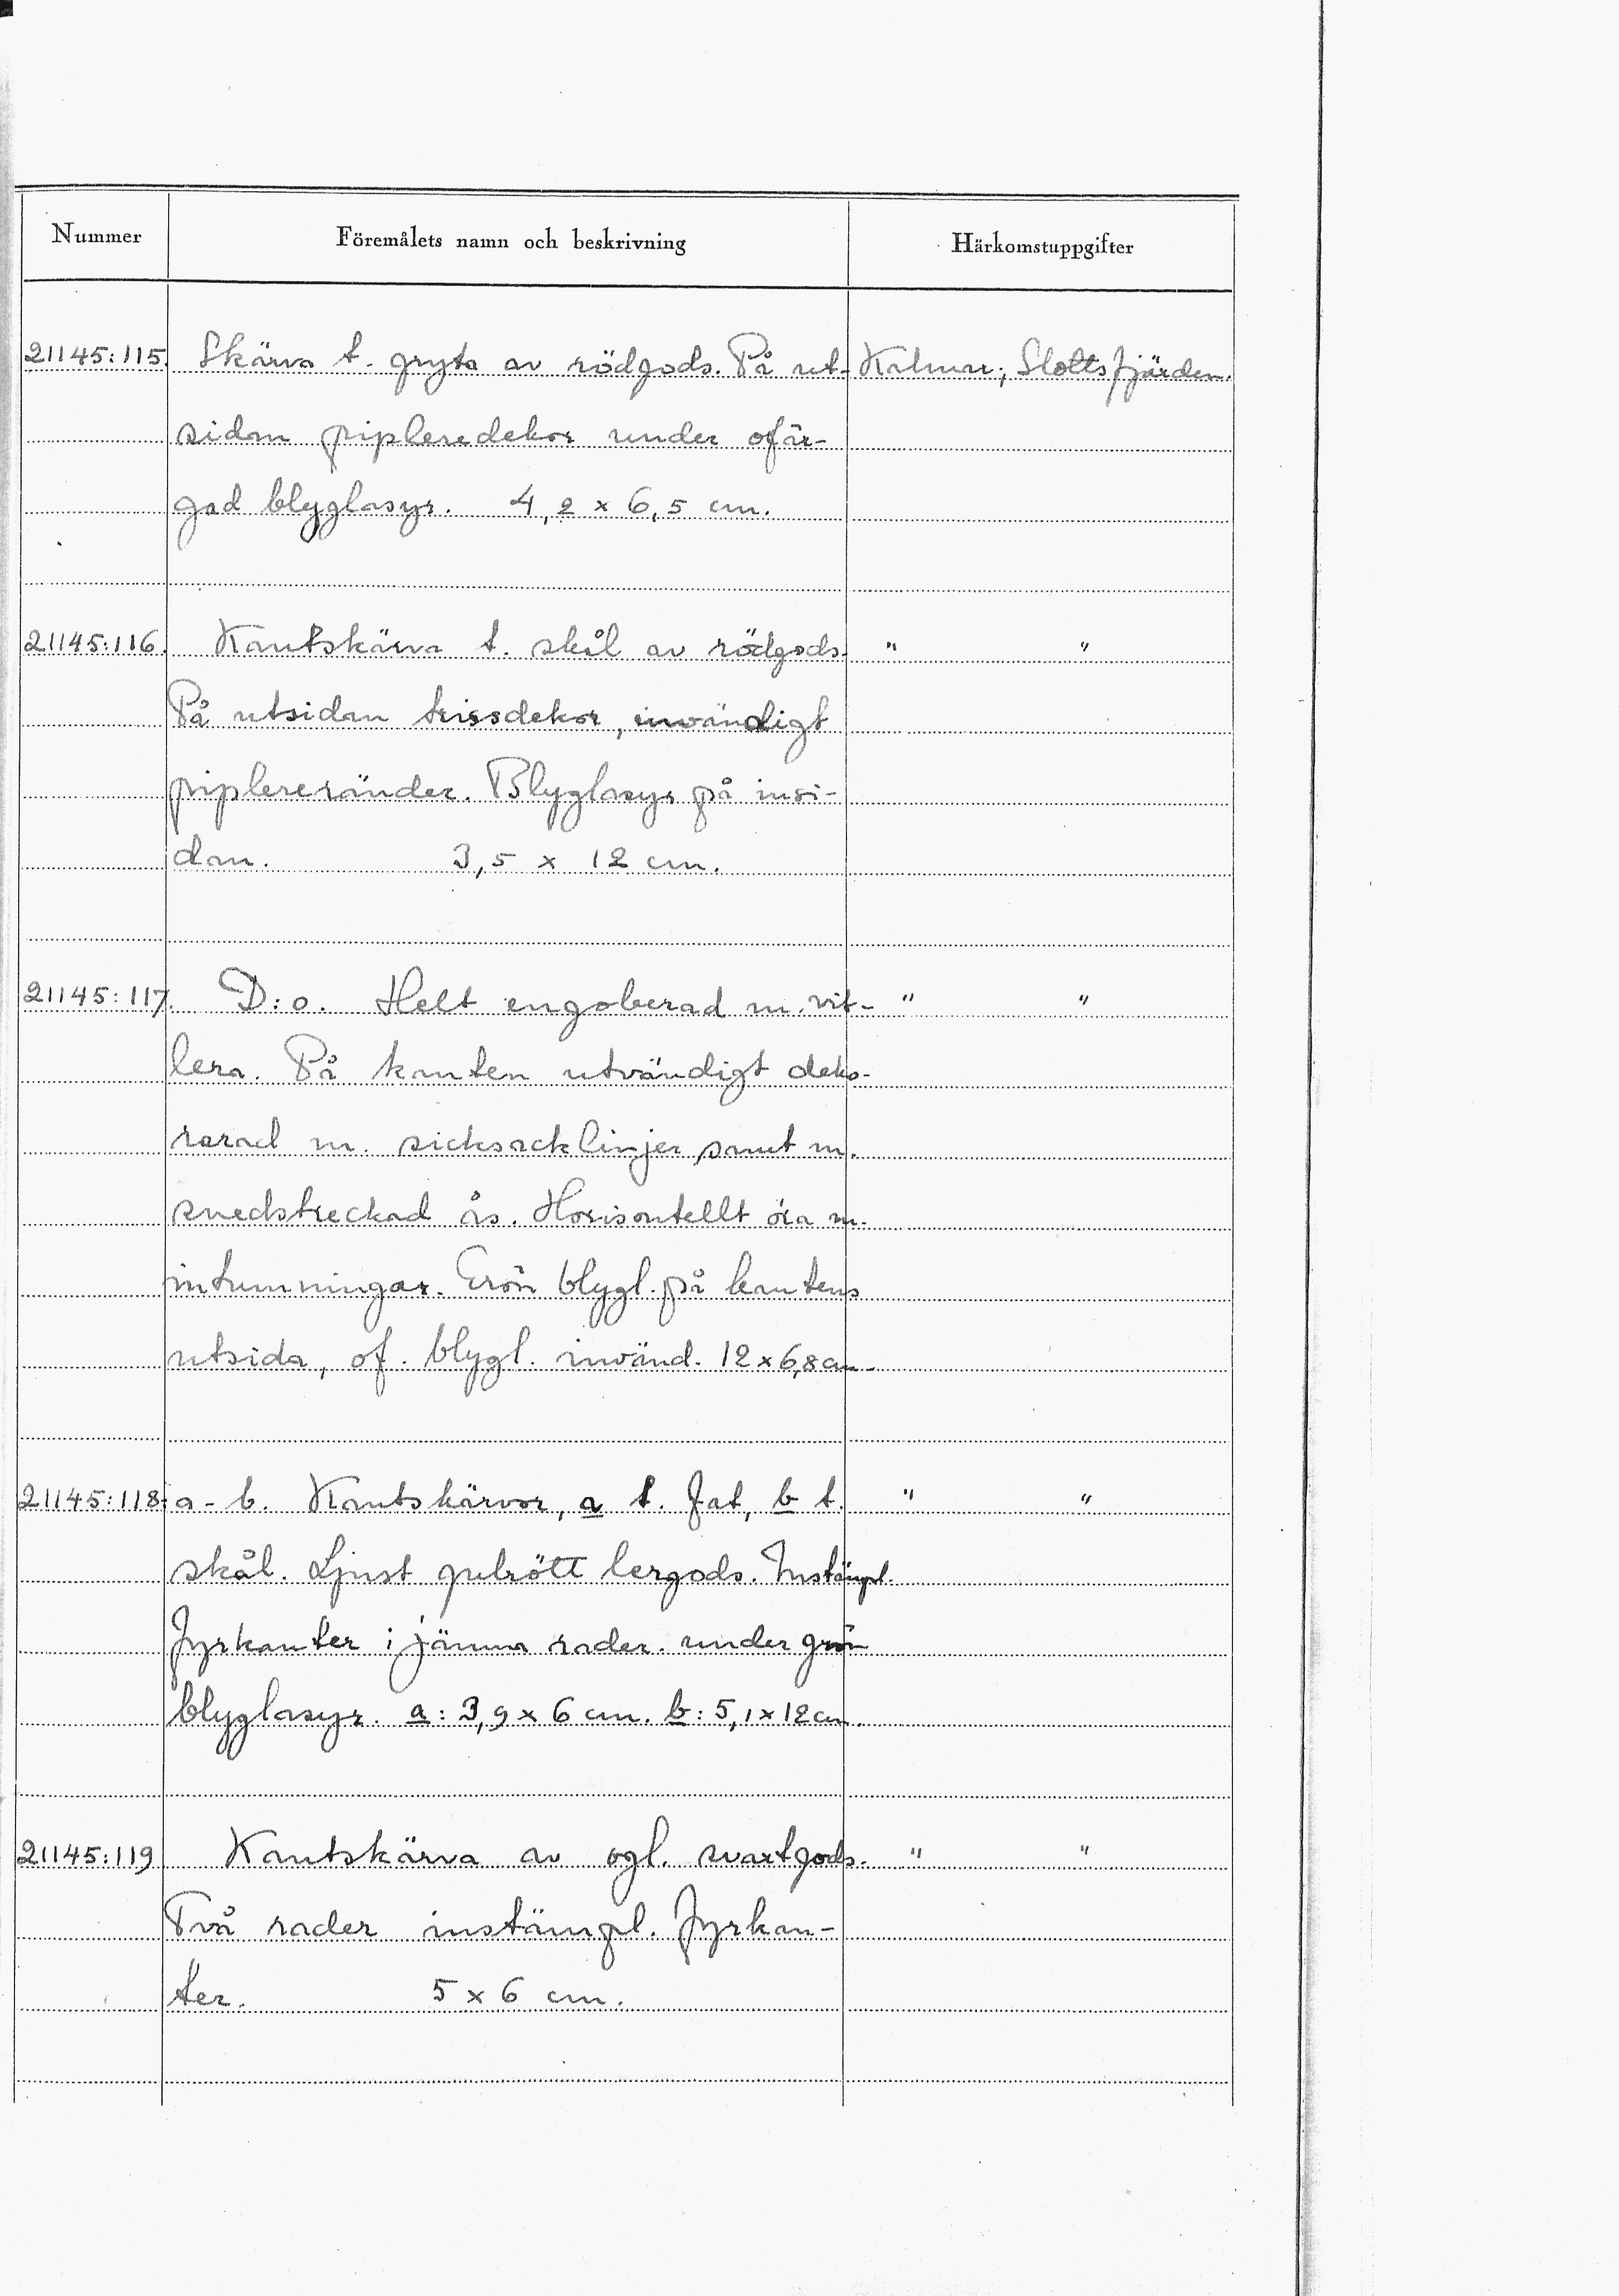 Nummer Föremålets namn och beskrivning Härkomstuppgifter
21145:115. Skärva t. gryta av rödgods. På ut- Kalmar; Slottsfjärden.
sidan pipleredekor under ofär-
gad blyglasyr. 4,2 x 6,5 cm.
21145:116. Kantskärva t. skål av rödgods. " "
På utsidan trissdekor, invändigt
piplereränder. Blyglasyr på insi-
dan. 3,5 x 12 cm.
21145:117. D:o. Helt engoberad m. vit- " "
lera. På kanten utvändigt deko-
rerad m. sicksacklinjer samt m.
snedstreckad ås. Horisontellt öra m.
intumningar. Grön blygl. på kantens
utsida, of. blygl. invänd. 12 x 6,8 cm.
21145:118: a-b. Kantskärvor, a t. fat, b t. " "
skål. Ljust gulrött lergods. Instämpl.
fyrkanter i jämna rader. under grön
blyglasyr. a: 3,9 x 6 cm. b: 5,1 x 12 cm.
21145:119 Kantskärva av ogl. svartgods. " "
Två rader instämpl. fyrkan-
ter. 5 x 6 cm.